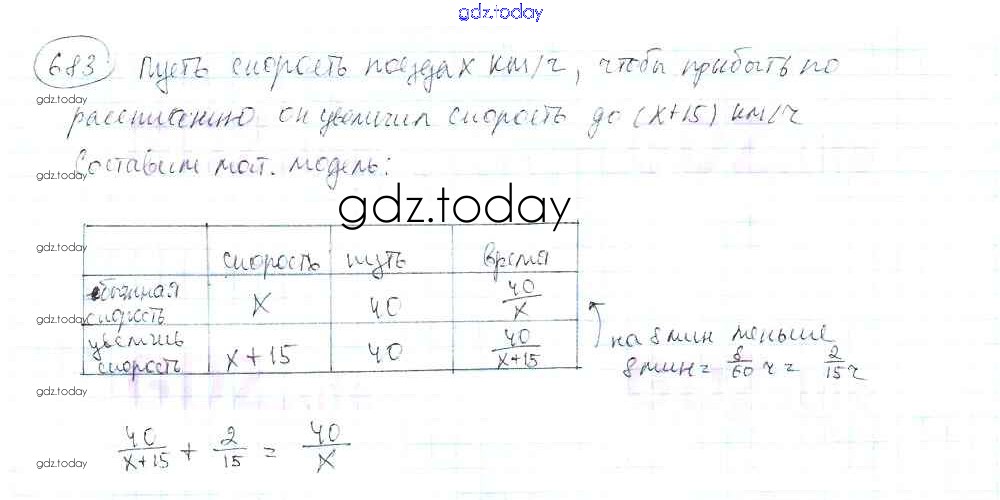 gdz.today
683 Пусть скорость поезда x км/ч, чтобы прибыть по
gdz.today
расписанию он увеличил скорость до (x+15) км/ч
Составим мат. модель:
gdz.today
gdz.today
gdz.today
скорость путь время
обычная скорость x 40 40/x
gdz.today
увеличь скорость x+15 40 40/x+15
на 8 мин меньше
8 мин = 8/60 ч = 2/15 ч
gdz.today
40/x+15 + 2/15 = 40/x
gdz.today